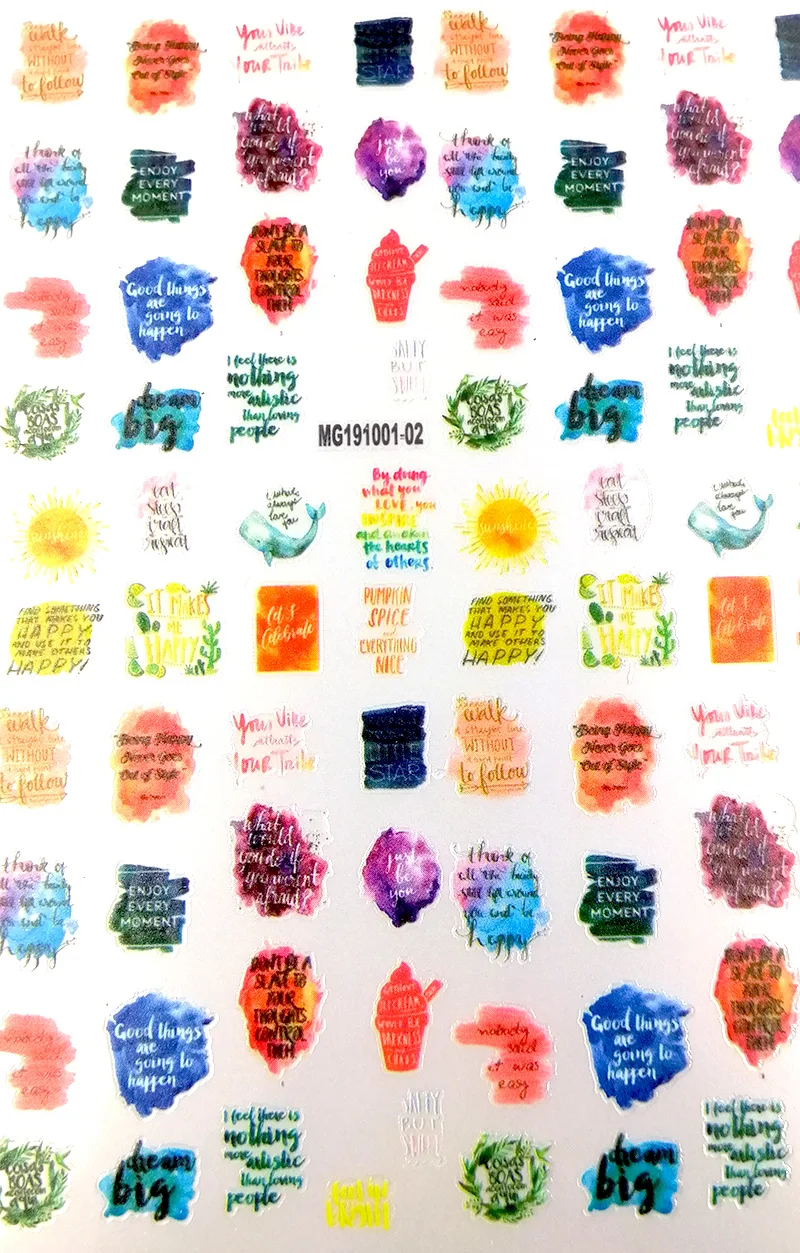 walk
straight line
WITHOUT
to follow
Being Happy
Never Goes
Out of Style
Your Vibe
attracts
Your Tribe
STAR
walk
straight line
WITHOUT
to follow
Being Happy
Never Goes
Out of Style
Your Vibe
attracts
Your Tribe
think of
all the beauty
still left around
you and be
happy
ENJOY
EVERY
MOMENT
what
would
you do if
you weren't
afraid?
just
be
you
think of
all the beauty
still left around
you and be
happy
ENJOY
EVERY
MOMENT
what
would
you do if
you weren't
afraid?
nobody
said
it was
easy
Good things
are
going to
happen
DON'T BE A
SLAVE TO
YOUR
THOUGHTS
CONTROL
THEM
WITHOUT
ICECREAM
WOULD BE
DARKNESS
CHAOS
nobody
said
it was
easy
Good things
are
going to
happen
DON'T BE A
SLAVE TO
YOUR
THOUGHTS
CONTROL
THEM
COSAS
BOAS
dream
big
I feel there is
nothing
more artistic
than loving
people
SALTY
BUT
SWEET
MG191001-02
COSAS
BOAS
dream
big
I feel there is
nothing
more artistic
than loving
people
sunshine
eat
sleep
craft
repeat
I whale
always
love
you
By doing
what you
LOVE, you
INSPIRE
and awaken
the hearts
of others.
sunshine
eat
sleep
craft
repeat
I whale
always
love
you
FIND SOMETHING
THAT MAKES YOU
HAPPY
AND USE IT TO
MAKE OTHERS
HAPPY!
IT MAKES
ME
HAPPY
Let's
Celebrate
PUMPKIN
SPICE
and
EVERYTHING
NICE
FIND SOMETHING
THAT MAKES YOU
HAPPY
AND USE IT TO
MAKE OTHERS
HAPPY!
IT MAKES
ME
HAPPY
Let's
Celebrate
walk
straight line
WITHOUT
to follow
Being Happy
Never Goes
Out of Style
Your Vibe
attracts
Your Tribe
STAR
walk
straight line
WITHOUT
to follow
Being Happy
Never Goes
Out of Style
Your Vibe
attracts
Your Tribe
think of
all the beauty
still left around
you and be
happy
ENJOY
EVERY
MOMENT
what
would
you do if
you weren't
afraid?
just
be
you
think of
all the beauty
still left around
you and be
happy
ENJOY
EVERY
MOMENT
what
would
you do if
you weren't
afraid?
nobody
said
it was
easy
Good things
are
going to
happen
DON'T BE A
SLAVE TO
YOUR
THOUGHTS
CONTROL
THEM
WITHOUT
ICECREAM
WOULD BE
DARKNESS
CHAOS
nobody
said
it was
easy
Good things
are
going to
happen
DON'T BE A
SLAVE TO
YOUR
THOUGHTS
CONTROL
THEM
COSAS
BOAS
dream
big
I feel there is
nothing
more artistic
than loving
people
SALTY
BUT
SWEET
COSAS
BOAS
dream
big
I feel there is
nothing
more artistic
than loving
people